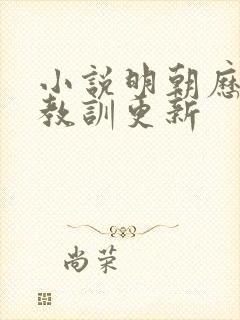 小說明朝歷
教訓更新
尚荣